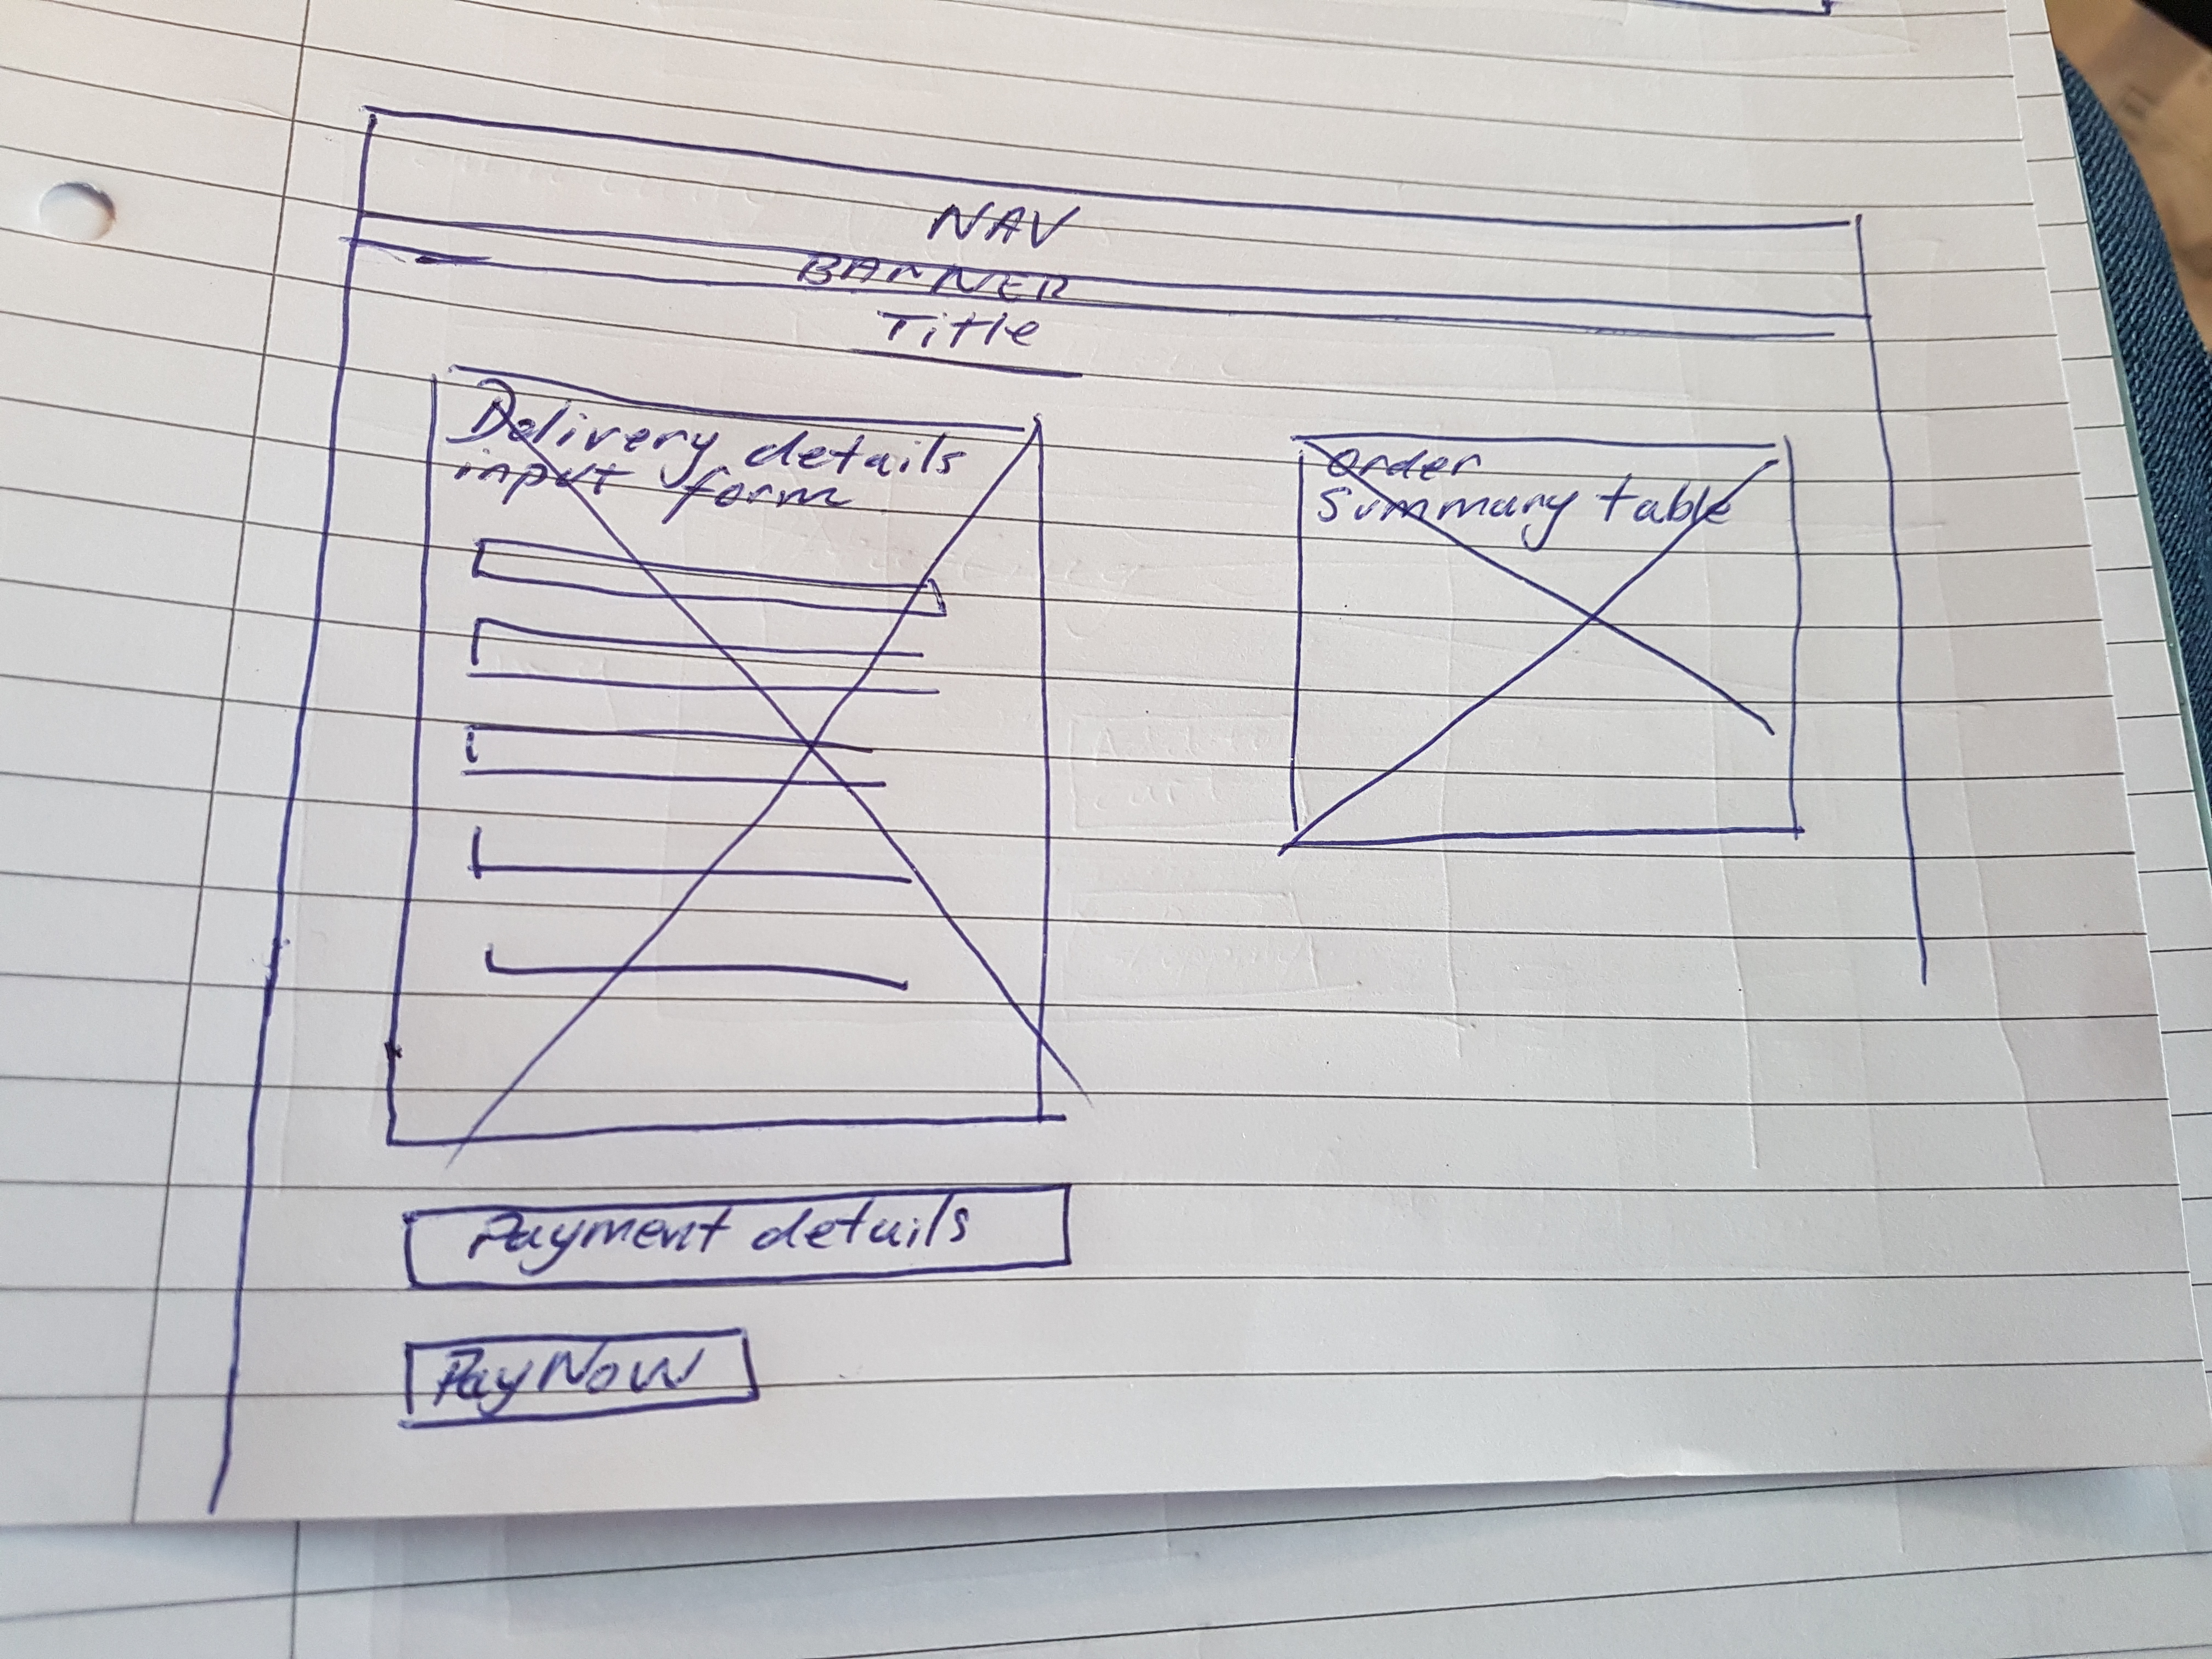 NAV
BANNER
Title
Delivery details
input form
order
Summary table
Payment details
Pay Now